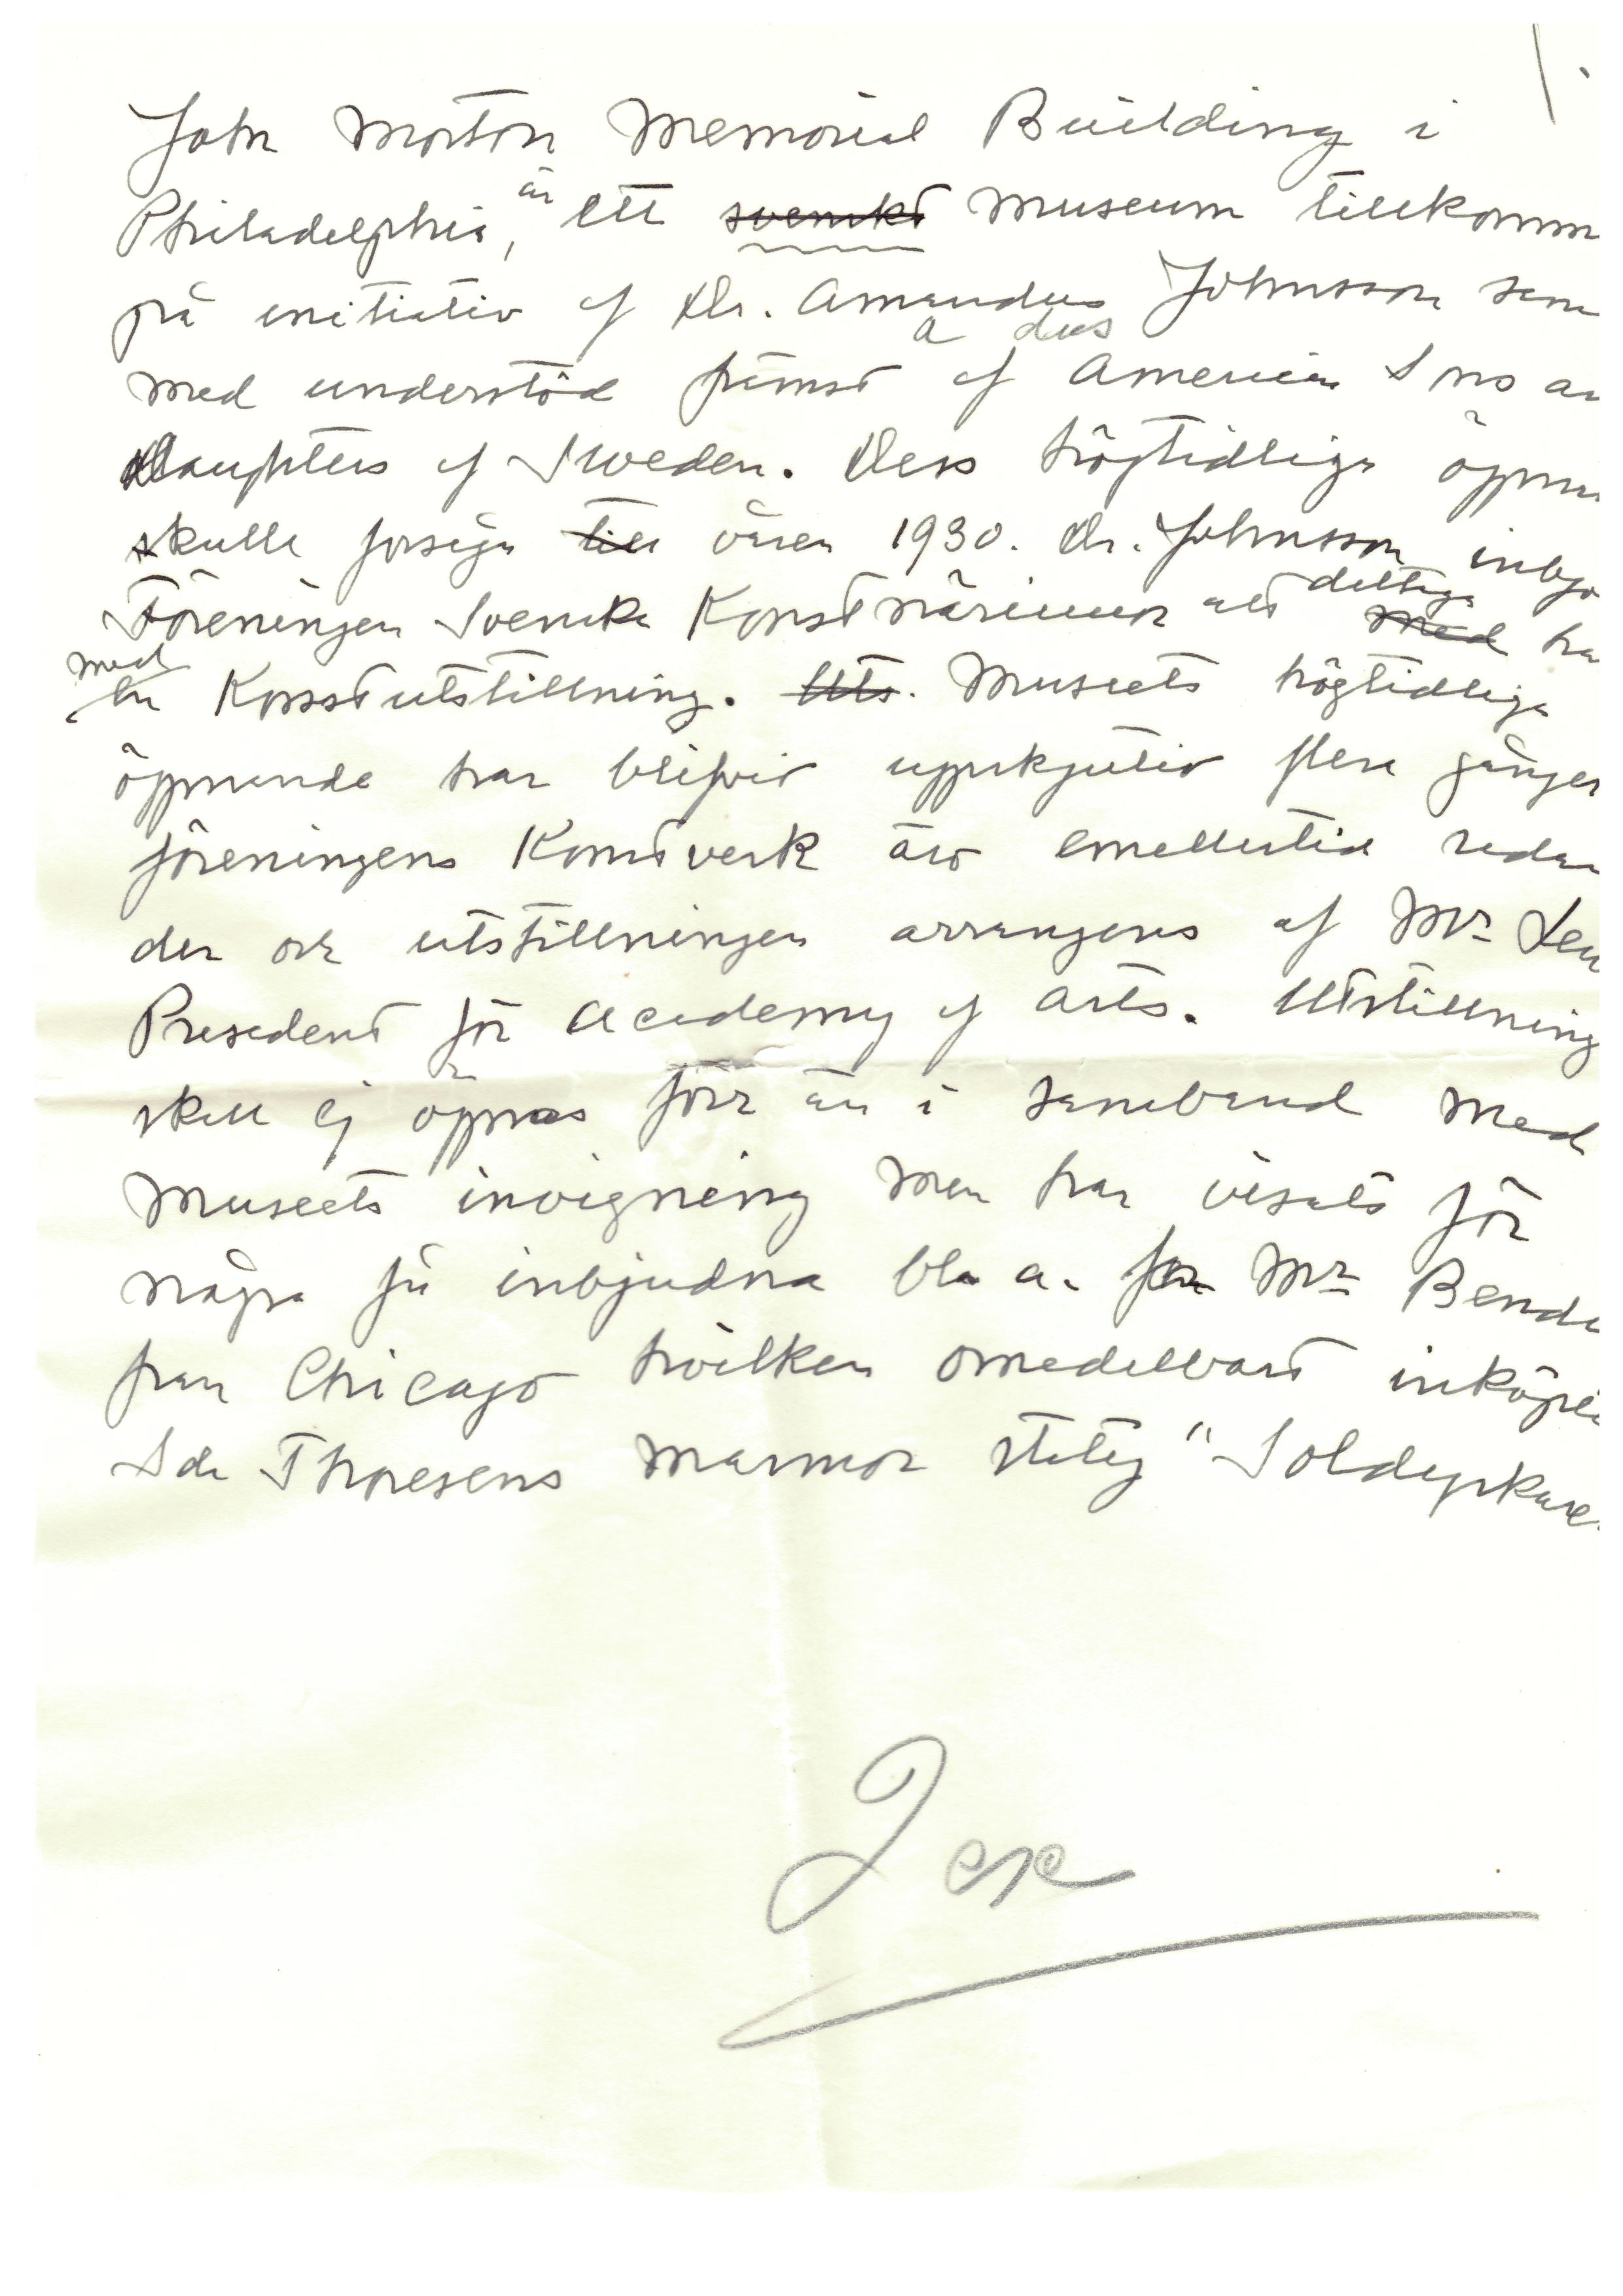 John Morton Memorial Building i
Philadelphia, är ett svenskt museum tillkomm
på initiativ af Dr. Amandus Johnsson sam
a dus
med understöd främst af American Sons an
Daughters of Sweden. Dess högtidliga öppna
skulle försiggå till våren 1930. Dr. Johnsson inbjö
Föreningen Svenska Konstnärinnor att deltaga med
med en Konstutställning. Uts. Museets högtidliga
öppnande har blifvit uppskjutit flera gånger
föreningens Konstverk äro emellertid redan
der och utställningen arrangeras af Mr
President för Academy of Arts. Utställning
skall ej öppnas förr än i samband med
Museets invigning men har visats för
några få inbjudna bl. a. för Mr Bende
från Chicago hvilken omedelbart inköpte
Ida Thoresens marmor staty "Soldyrkare